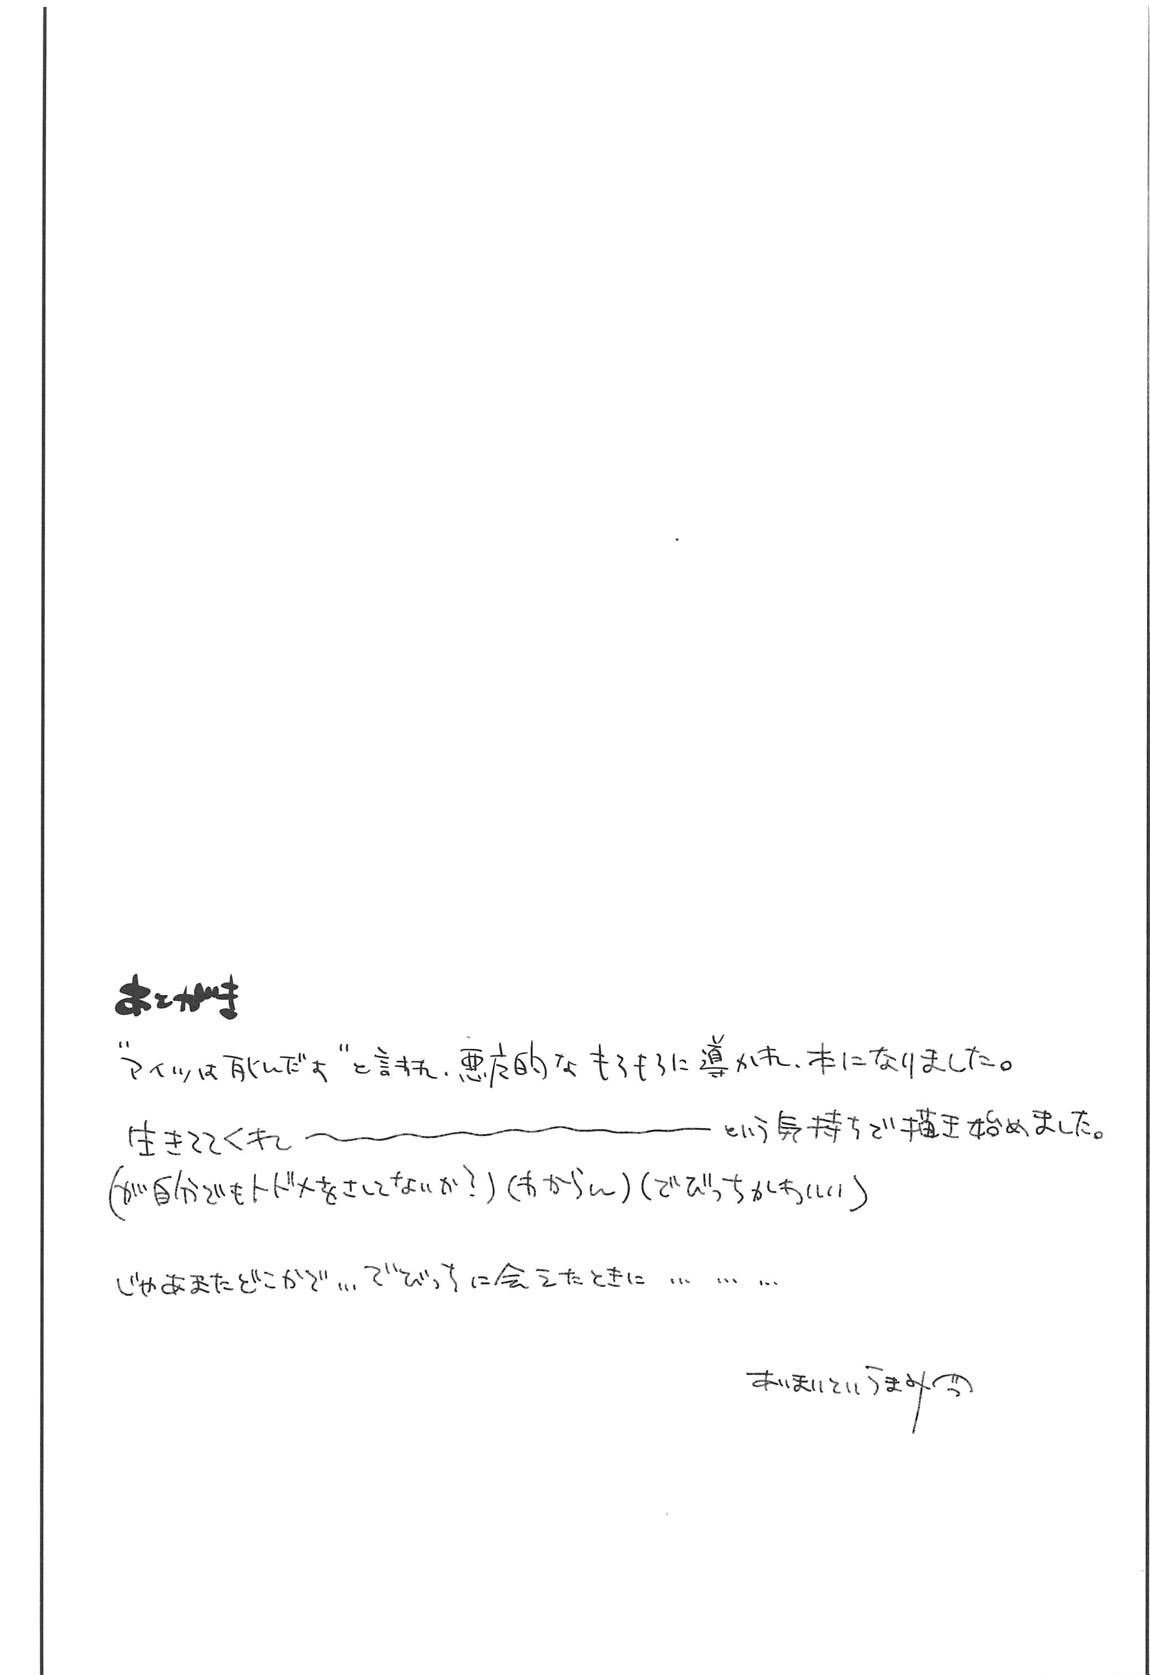 あとがき
"アイツは死んだよ"と言われ、悪魔的なもろもろに導かれ、本になりました。
生きててくれ〜という気持ちで描き始めました。
(が自分でもトドメをさしてないか?)(わからん)(でびっちかわいい)
じゃあまたどこかで…でびっちに会えたときに… … …
あいまいというまみ